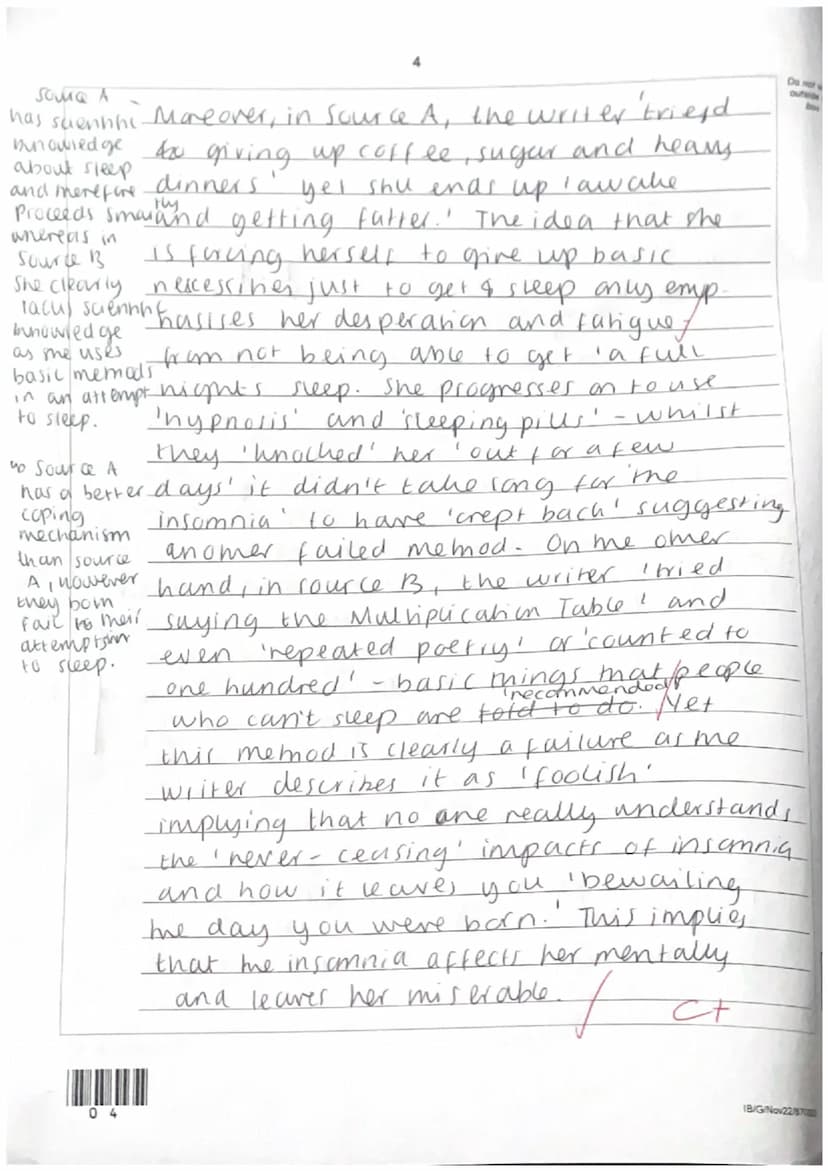 4
Do not
outside
box
Source A
has scientific
knowledge
about sleep
and therefore
proceeds smartly
whereas in
Source B
she clearly
lacks scientific
knowledge
as she uses
basic methods
in an attempt
to sleep.
so Source A
has a better
coping
mechanism
than source
A, however
they both
fail to their
attempts
to sleep.
Moreover, in Source A, the writer 'tried
giving up coffee, sugar and heavy
dinners' yet she ends up 'awake
and getting fatter.' The idea that she
is forcing herself to give up basic
nescessities just to get sleep only emp-
hasises her desperation and fatigue
from not being able to get 'a full
nights sleep. She progresses on to use
'hypnosis' and 'sleeping pills' - whilst
they 'knocked' her 'out for a few
days' it didn't take long for 'the
insomnia' to have 'crept back' suggesting
another failed method. On the other
hand, in source B, the writer 'tried
saying the Multiplication Table' and
even 'repeated poetry' or 'counted to
one hundred' - basic things that people
recommended
who can't sleep are told to do. Yet
this method is clearly a failure as the
writer describes it as 'foolish'
implying that no one really understands
the 'never-ceasing' impacts of insomnia
and how it leaves you 'bewailing
the day you were born.' This implies
that the insomnia affects her mentally
and leaves her miserable.
C+
04
IB/G/Nov22/8700